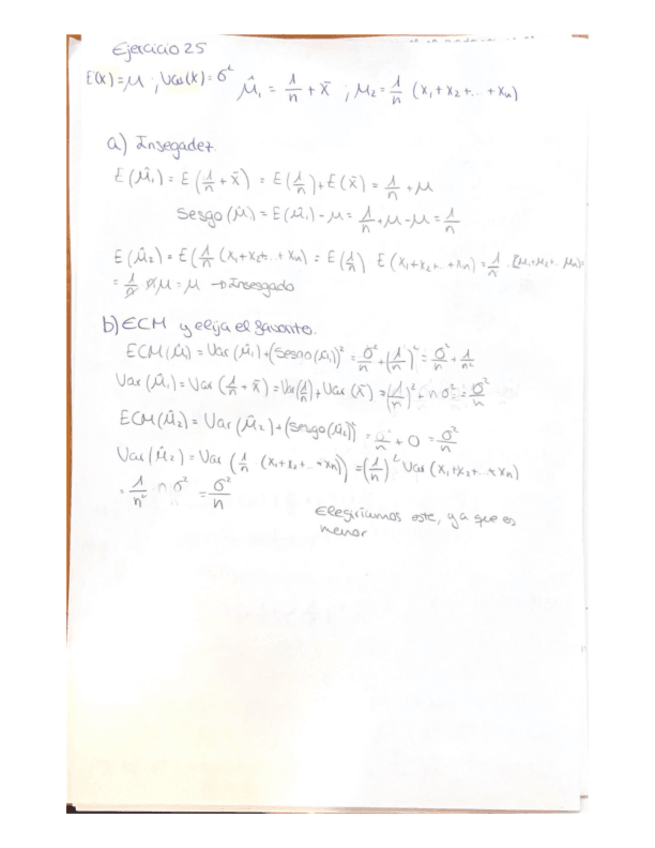 Ejercicio 25
E(x)=μ ; Var(x)=σ² μ̂₁ = 1/n + x̄ ; μ₂ = 1/n (x₁+x₂+...+xₙ)
a) Insegadez.
E(μ̂₁) = E(1/n + x̄) = E(1/n)+E(x̄) = 1/n + μ
Sesgo(μ̂₁) = E(μ̂₁)-μ = 1/n + μ - μ = 1/n
E(μ̂₂) = E(1/n (x₁+x₂+...+xₙ) = E(1/n) E(x₁+x₂+...+xₙ) = 1/n · (μ₁+μ₂+... μₙ)=
= 1/n nμ = μ → Insesgado
b) ECM y elija el favorito.
ECM(μ̂₁) = Var(μ̂₁)+(sesgo(μ̂₁))² = σ²/n + (1/n)² = σ²/n + 1/n²
Var(μ̂₁) = Var(1/n + x̄) = Var(1/n) + Var(x̄) = (1/n)² + n σ² = σ²/n
ECM(μ̂₂) = Var(μ̂₂)+(sesgo(μ̂₂))² = σ²/n + 0 = σ²/n
Var(μ̂₂) = Var(1/n (x₁+x₂+...+xₙ)) = (1/n)² Var(x₁+x₂+...+xₙ)
= 1/n² n σ² = σ²/n
Elegiríamos este, ya que es
menor